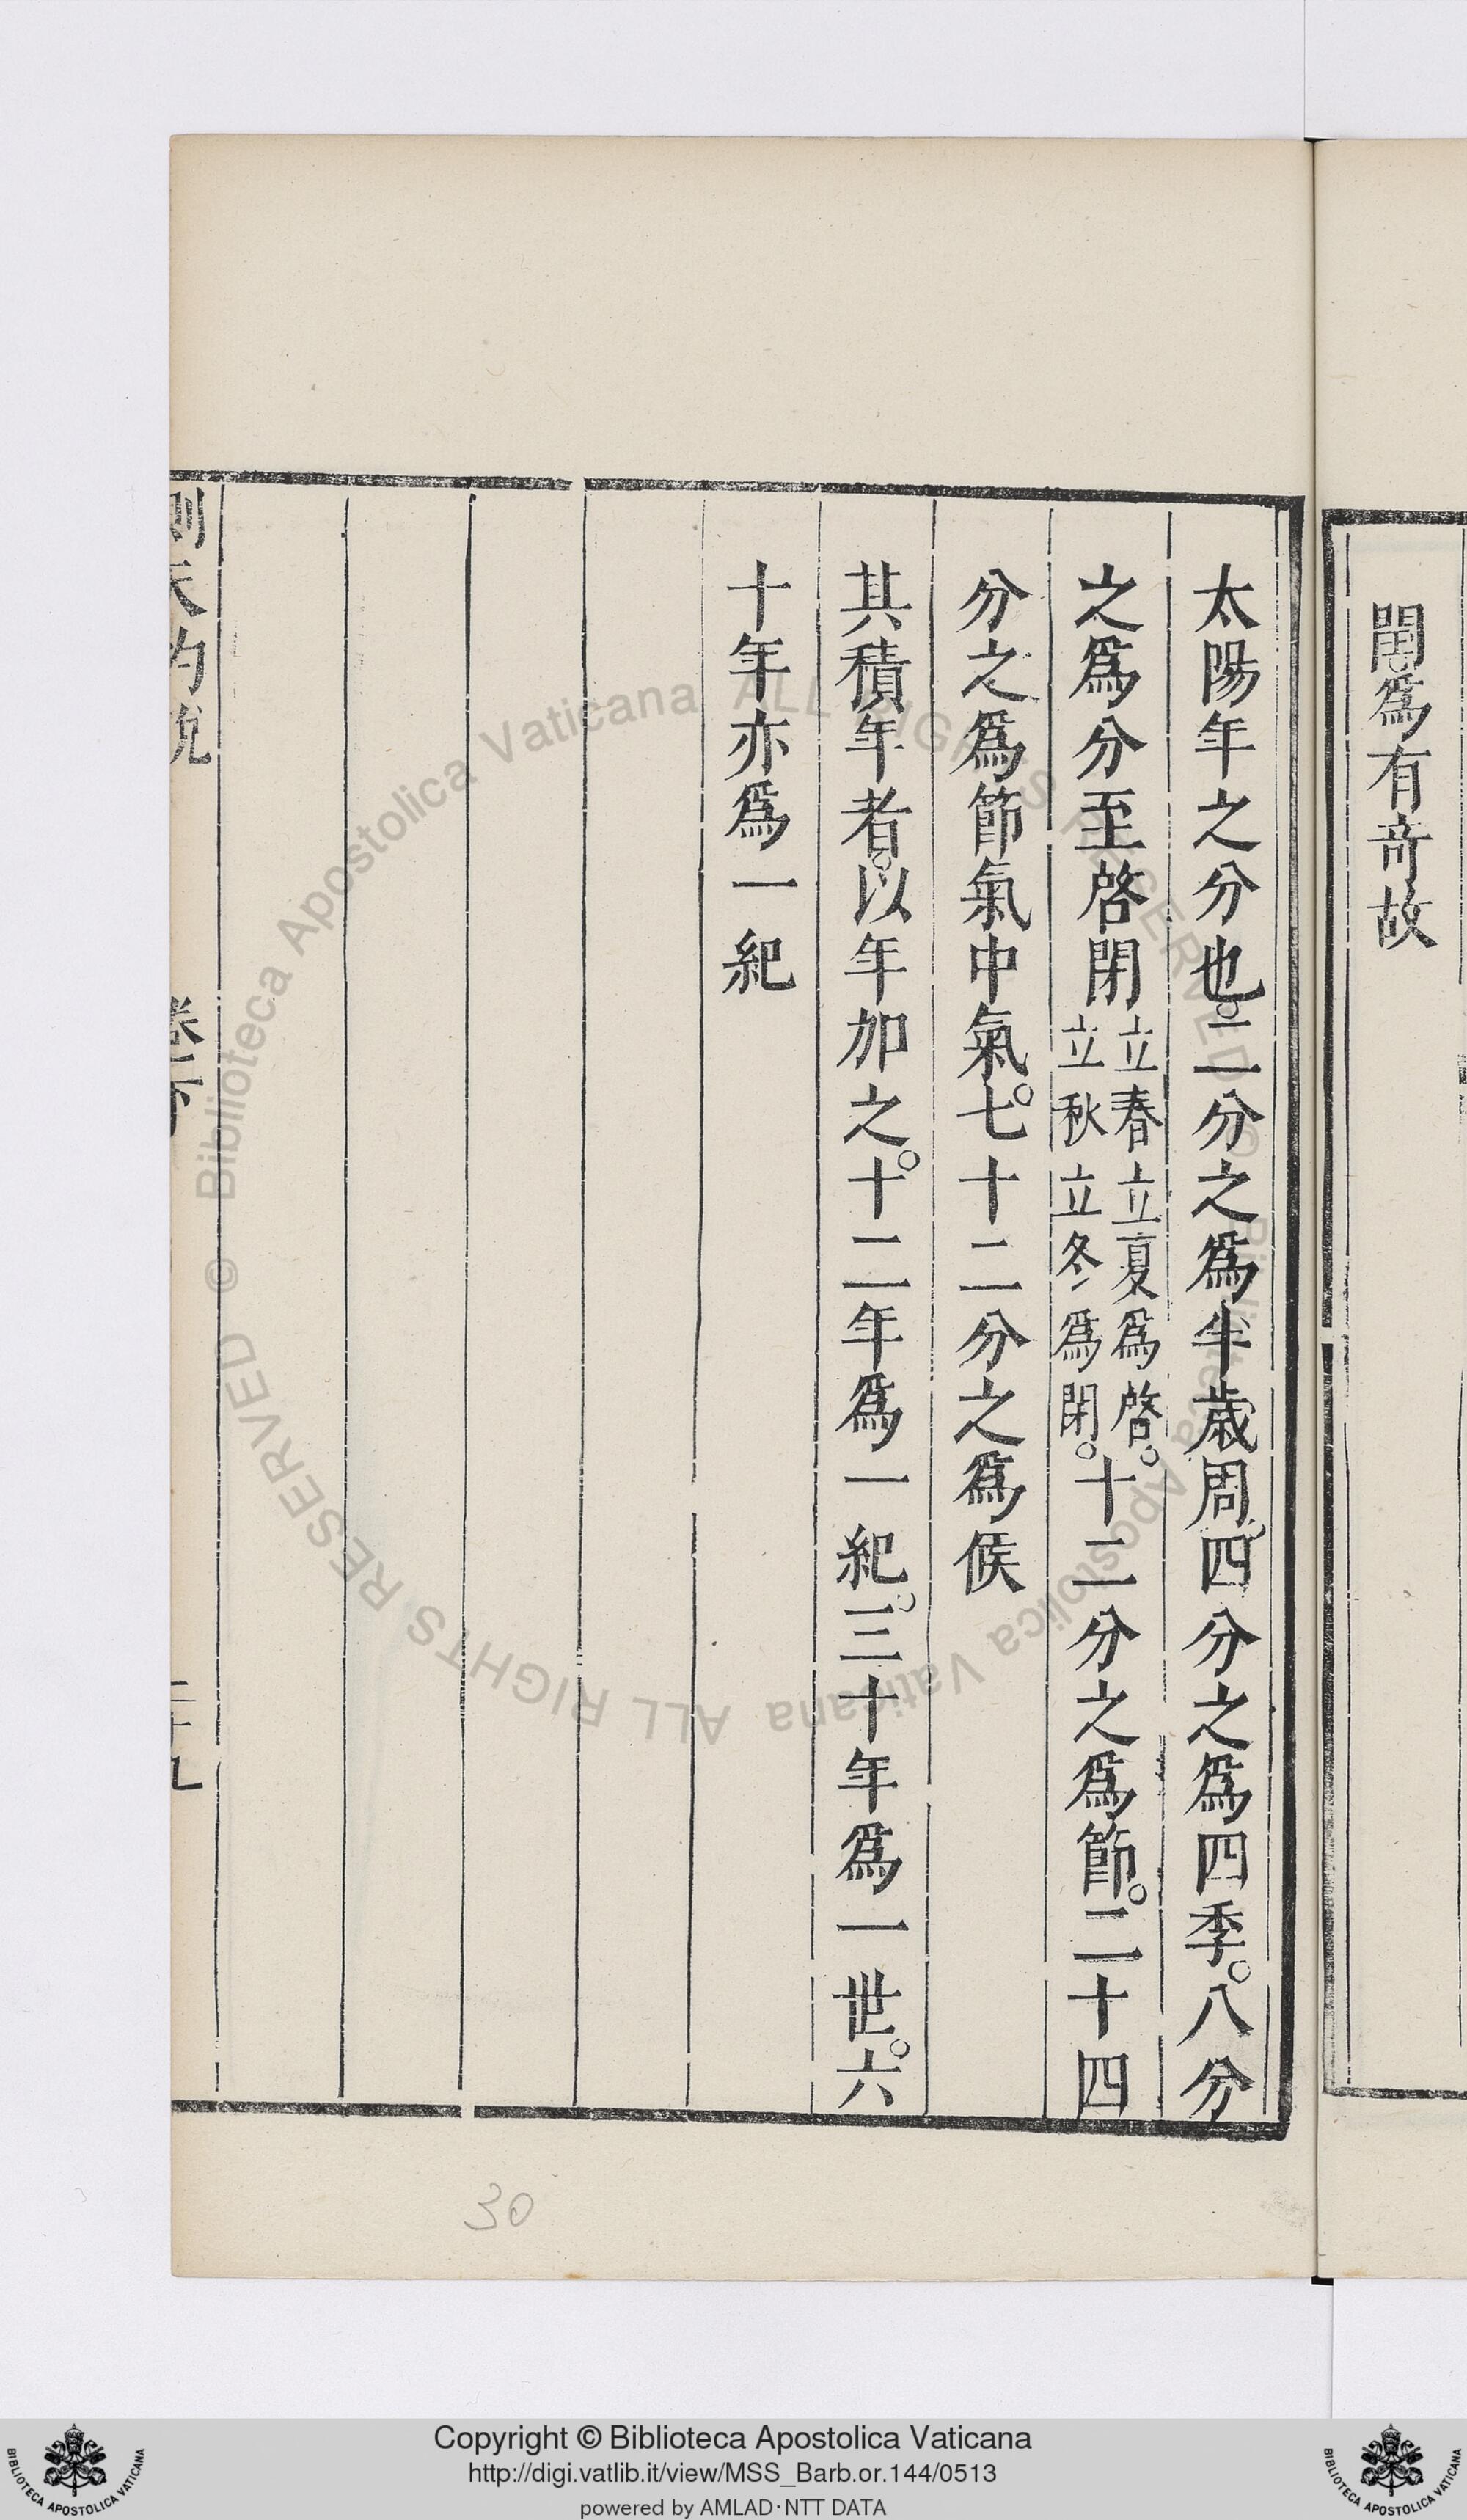 閏爲有竒故
太陽年之分也。二分之爲半歲周。四分之爲四季。八分
之爲分至啓閉立春立夏爲啓。立秋立冬爲閉。十二分之爲節。二十四
分之爲節氣中氣。七十二分之爲候
其積年者。以年加之。十二年爲一紀。三十年爲一世。六
十年亦爲一紀
測天約說
卷下
二十九
30
Biblioteca Apostolica Vaticana ALL RIGHTS RESERVED ©
Biblioteca Apostolica Vaticana ALL RIGHTS RESERVED ©
Copyright © Biblioteca Apostolica Vaticana
http://digi.vatlib.it/view/MSS_Barb.or.144/0513
powered by AMLAD·NTT DATA
BIBLIOTECA APOSTOLICA VATICANA
BIBLIOTECA APOSTOLICA VATICANA